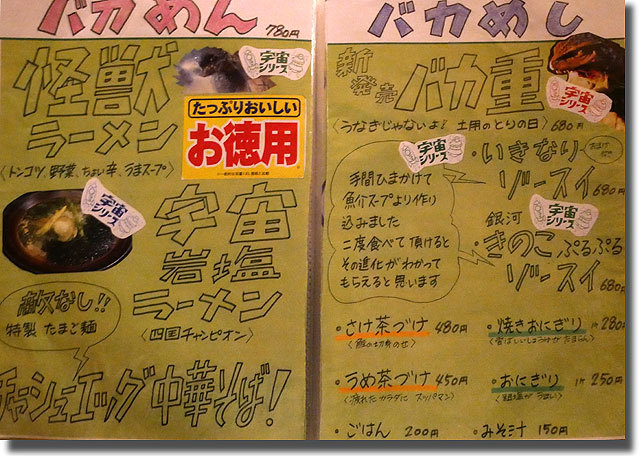 バカめん
780円
怪獣
ラーメン
〈トンコツ、野菜、ちょい辛、うまスープ〉
宇宙
シリーズ
たっぷりおいしい
お徳用
宇宙
シリーズ
宇宙
岩塩
ラーメン
〈四国チャンピオン〉
敵なし!!
特製 たまご麺
チャーシューエッグ中華そば!
バカめし
新
発売
バカ重
宇宙
シリーズ
〈うなぎじゃないよ? 土用のとりの日〉680円
宇宙
シリーズ
手間ひまかけて
魚介スープより作り
込みました
二度食べて頂けると
その進化がわかって
もらえると思います
・いきなり
ゾースイ 680円
銀河
宇宙
シリーズ
・きのこぷるぷる
ゾースイ 680円
・さけ茶づけ 480円
〈鮭の切身のせ〉
・うめ茶づけ 450円
〈疲れたカラダに スッパマン〉
・ごはん 200円
・焼きおにぎり 1ケ 280円
〈香ばしいしょうゆが たまらん〉
・おにぎり 1ケ 250円
〈粗塩がうまい〉
・みそ汁 150円